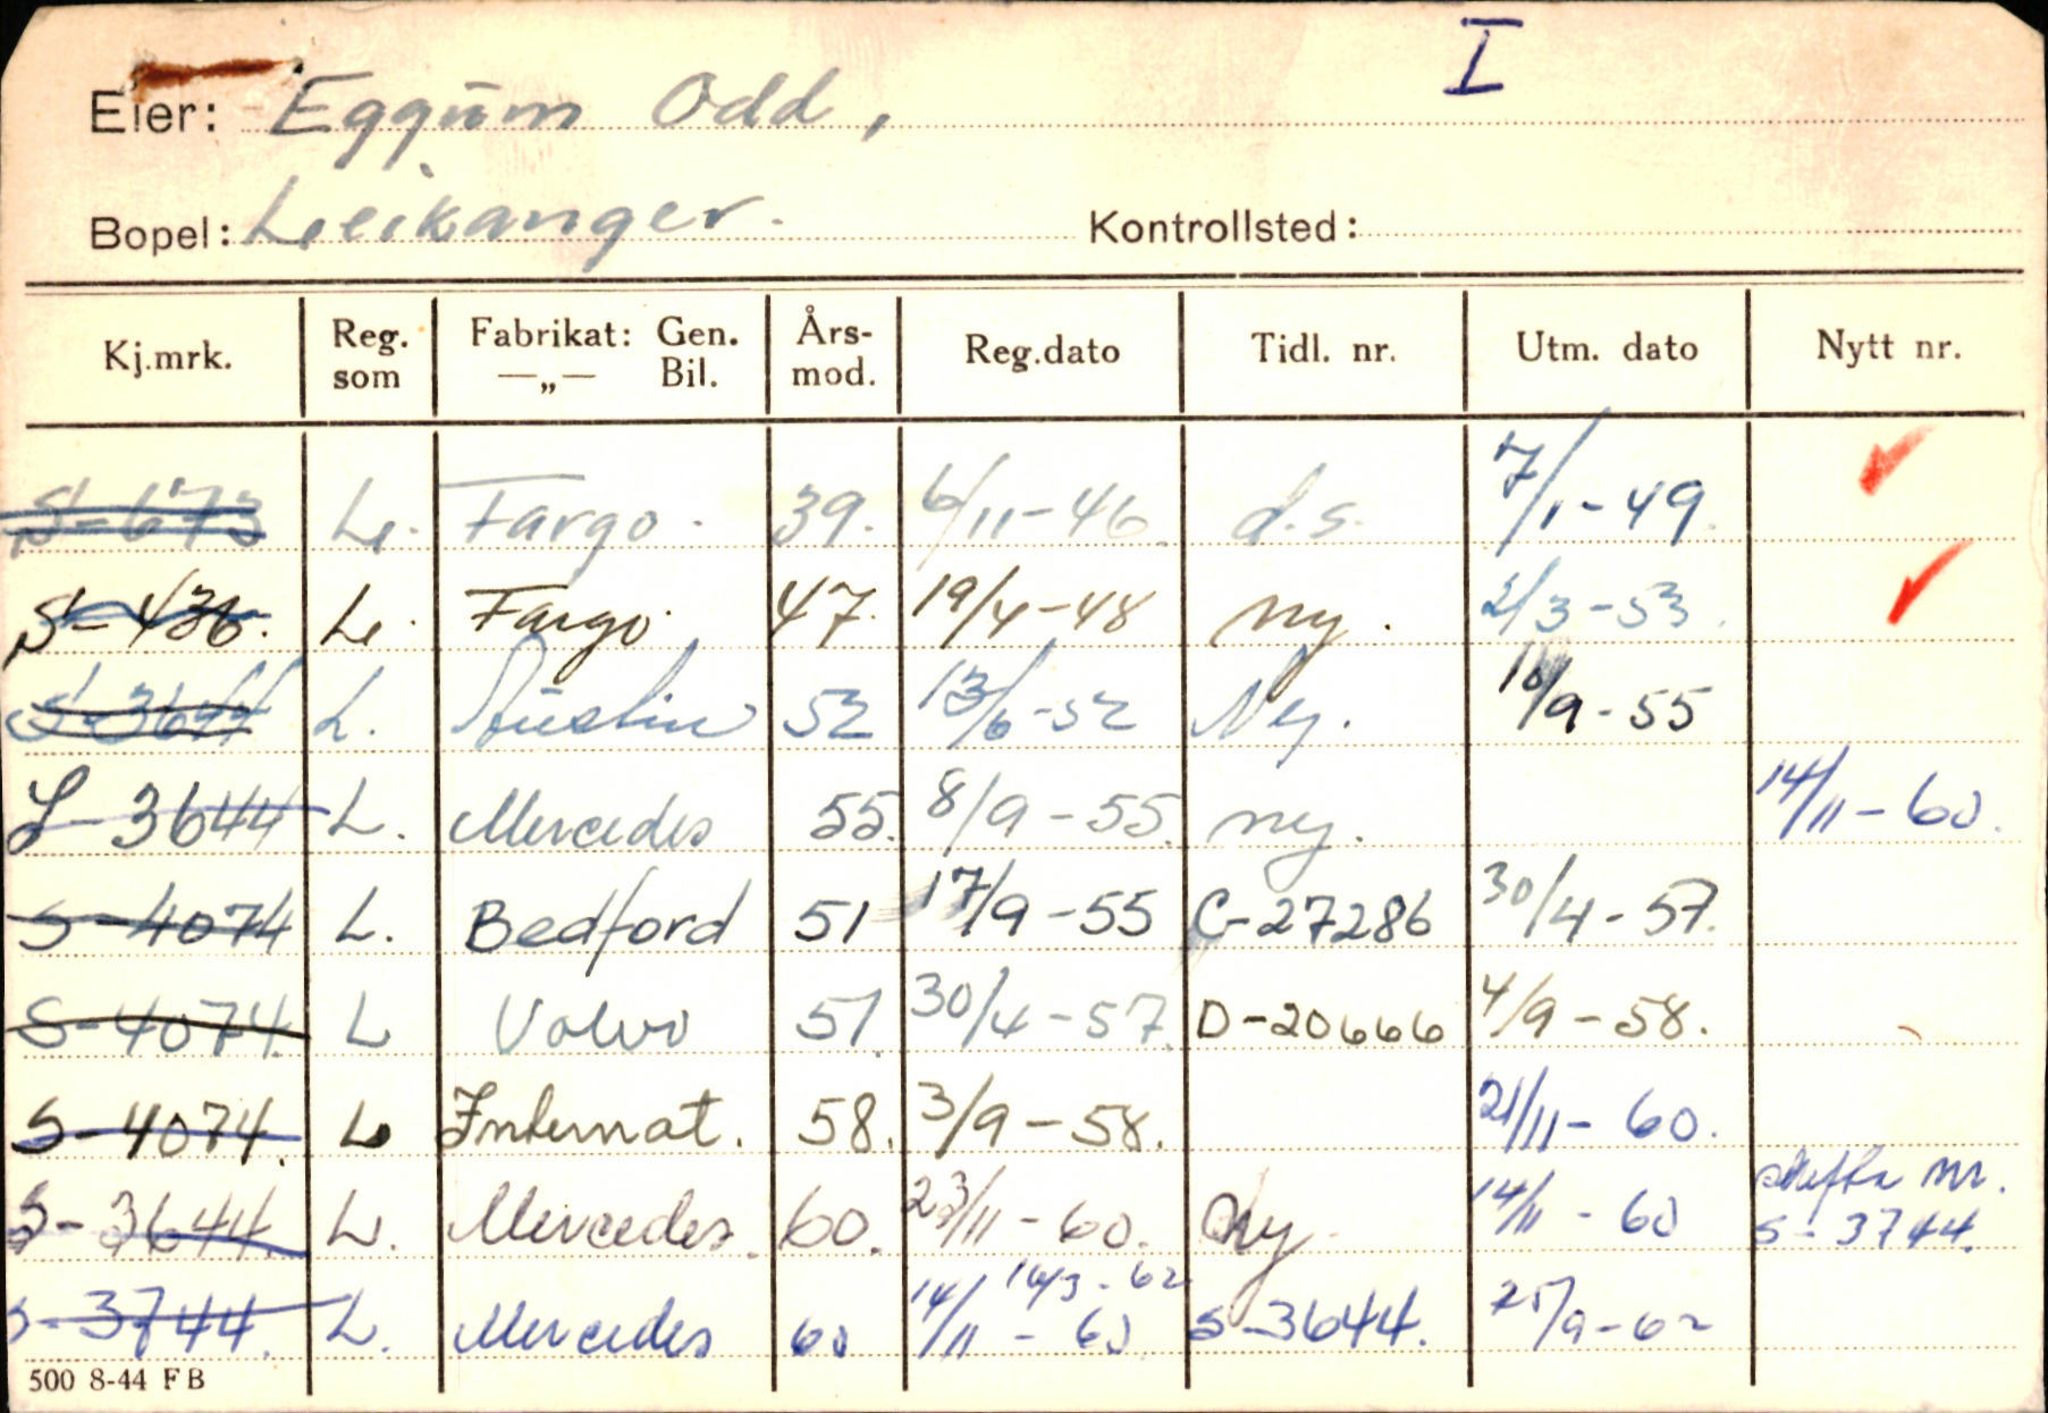 I
Eier: Eggum Odd,
Bopel: Leikanger. Kontrollsted:
Kj.mrk. Reg. som Fabrikat: Gen. —„— Bil. Års-mod. Reg.dato Tidl. nr. Utm. dato Nytt nr.
S-673 L. Fargo. 39. 6/11-46. d.s. 7/1-49.
S-436. L. Fargo. 47. 19/4-48 ny. 2/3-53.
S-3644 L. Austin 52 13/6-52 Ny. 10/9-55
S-3644 L. Mercedes 55. 8/9-55. ny. 14/11-60.
S-4074 L. Bedford 51 17/9-55 C-27286 30/4-57.
S-4074. L Volvo 51. 30/4-57. D-20666 4/9-58.
S-4074. L Internat. 58. 3/9-58. 21/11-60.
S-3644. L. Mercedes. 60. 23/11-60. Ny. 14/11-60 nr. S-3744.
S-3744. L. Mercedes 60 14/11-60 16/3-62 S-3644. 25/9-62
500 8-44 FB